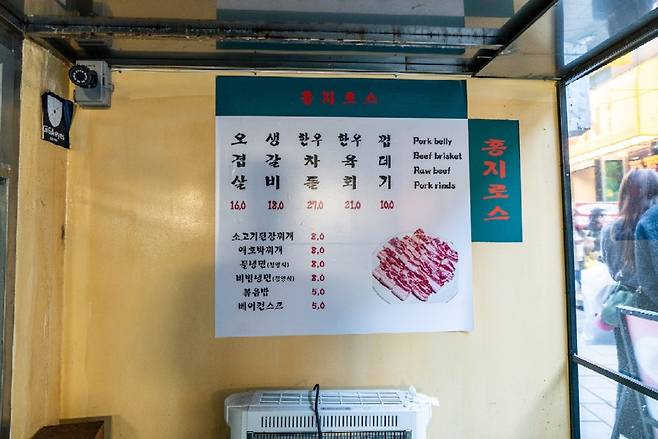 GiGAeyes
홍지로스
오겹살
생갈비
한우차돌
한우육회
껍데기
16.0 18.0 27.0 21.0 10.0
Pork belly
Beef brisket
Raw beef
Pork rinds
소고기된장찌개 8.0
애호박찌개 8.0
물냉면 8.0
비빔냉면 8.0
볶음밥 5.0
베이컨스크 5.0
홍지로스